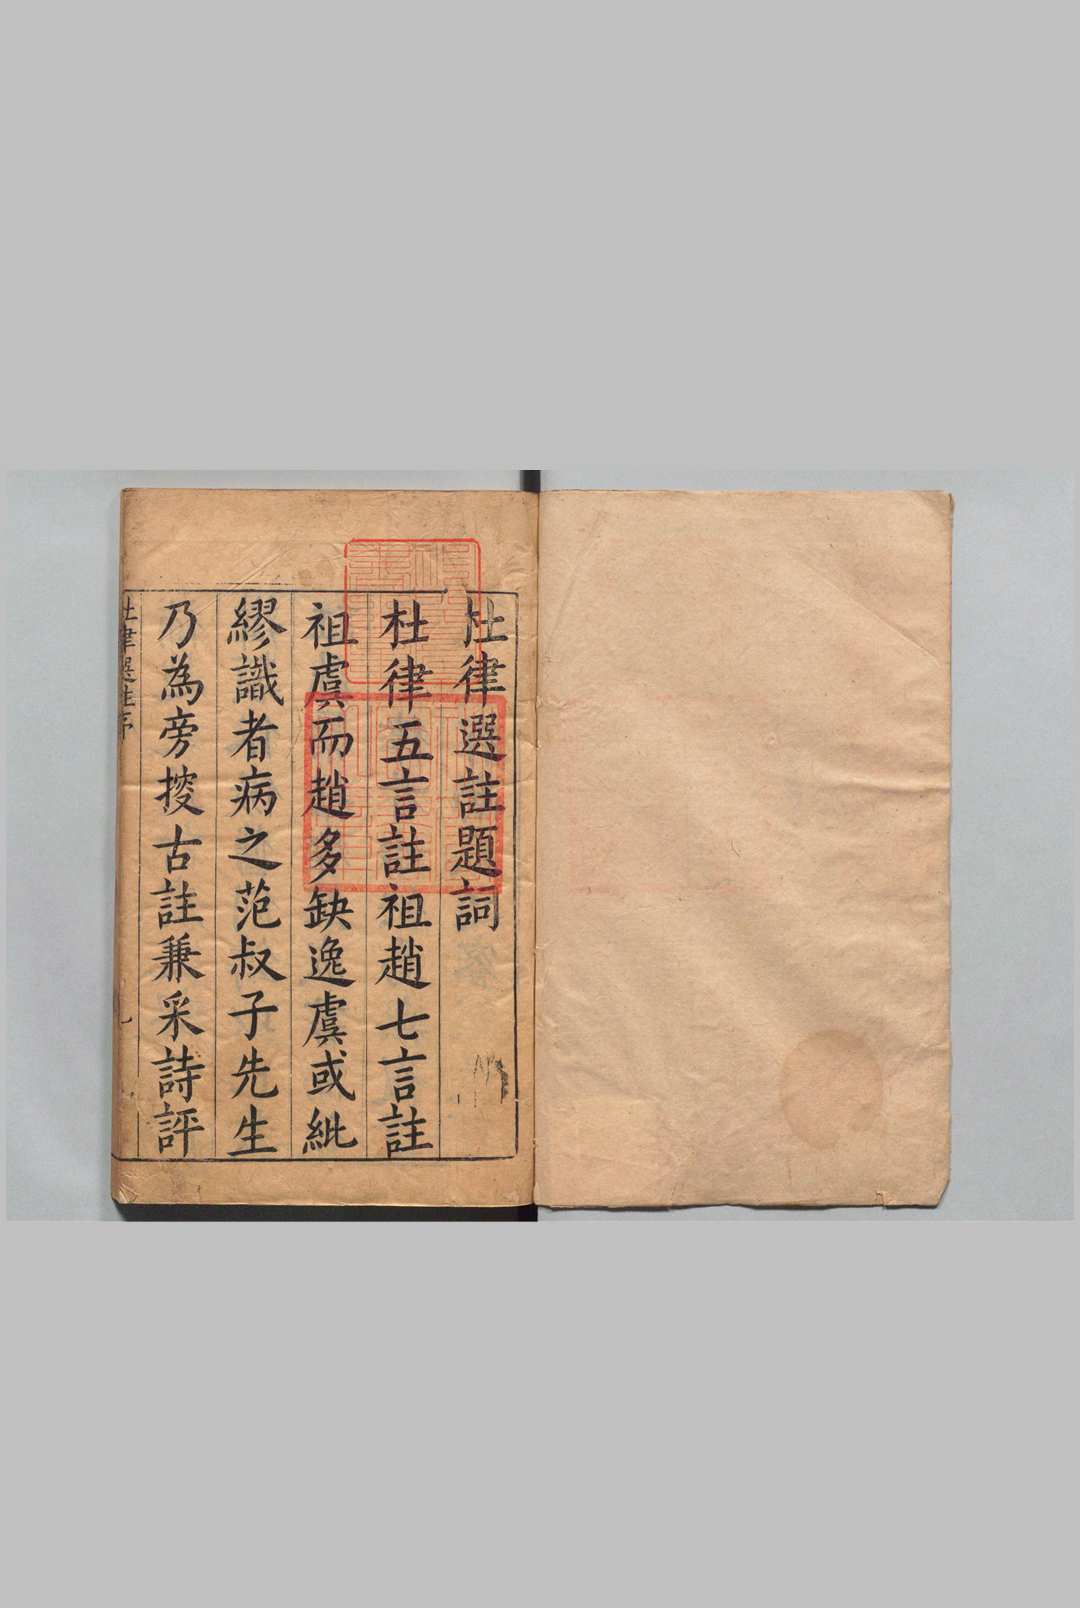 杜律選註題詞
杜律五言註祖趙七言註
祖虞而趙多缺逸虞或紕
繆識者病之范叔子先生
乃為旁搜古註兼采詩評
杜律選註序